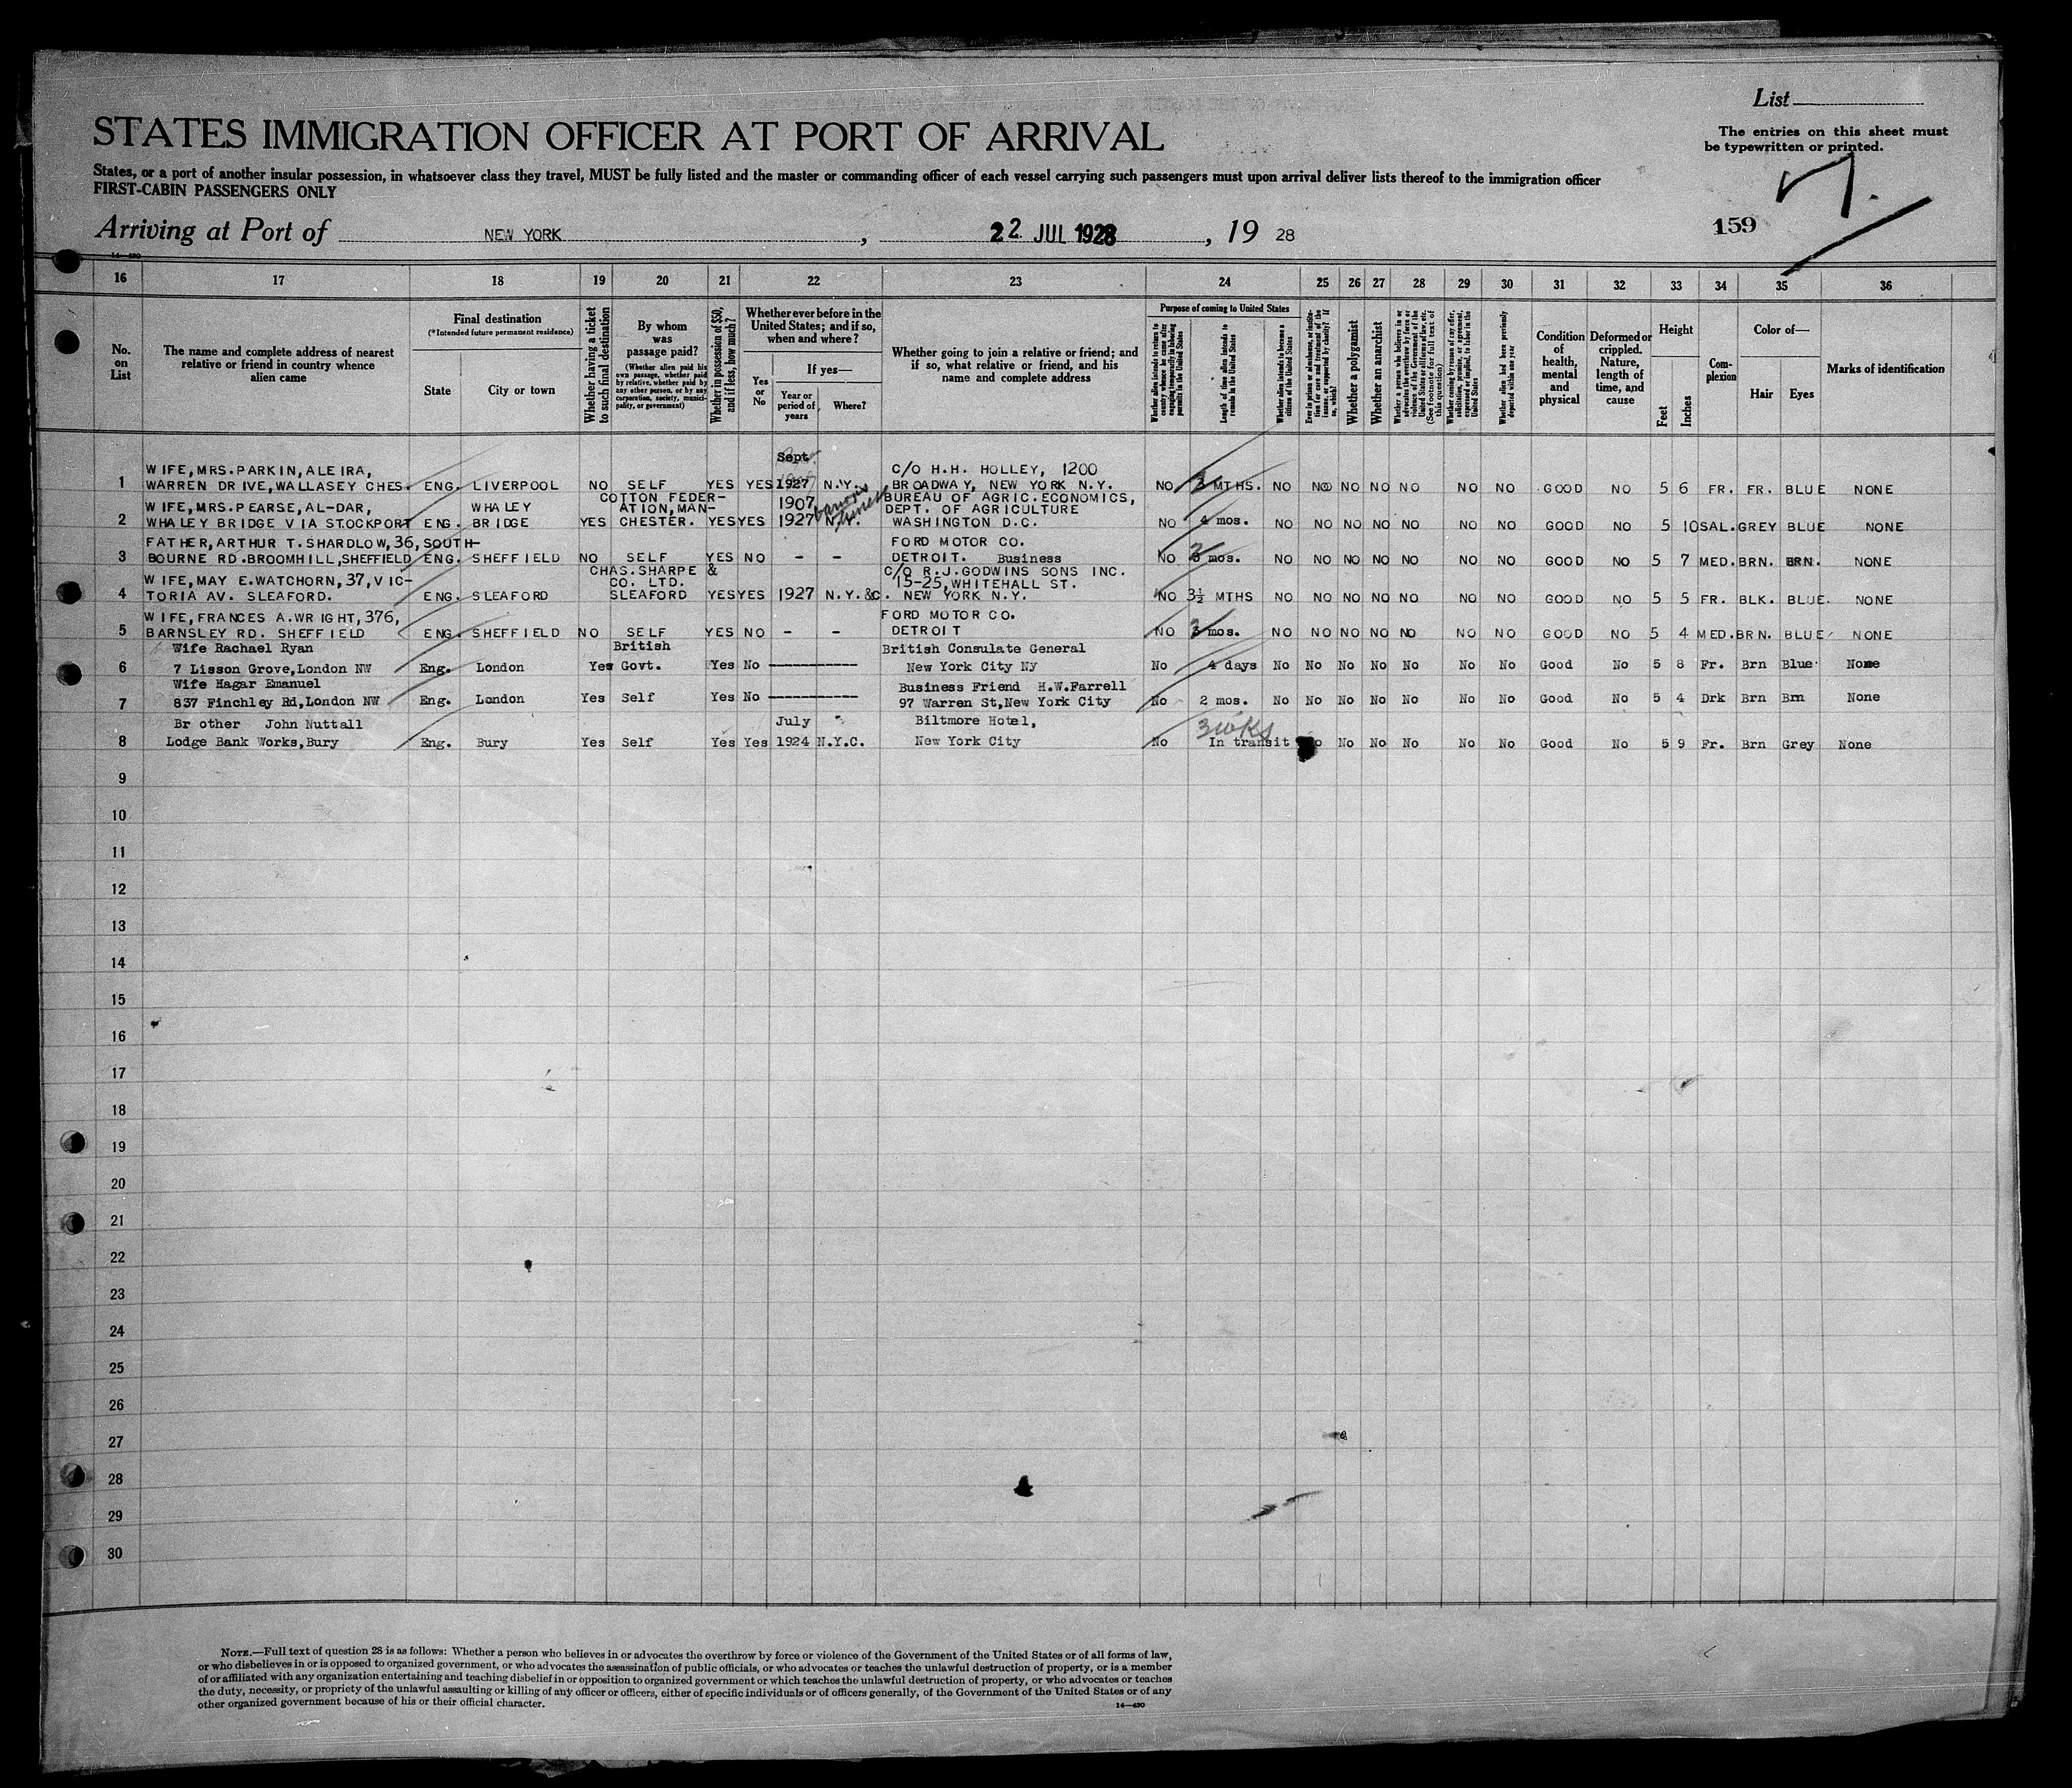 List
STATES IMMIGRATION OFFICER AT PORT OF ARRIVAL
The entries on this sheet must
be typewritten or printed.
States, or a port of another insular possession, in whatsoever class they travel, MUST be fully listed and the master or commanding officer of each vessel carrying such passengers must upon arrival deliver lists thereof to the immigration officer
FIRST-CABIN PASSENGERS ONLY
Arriving at Port of NEW YORK, 22 JUL 1928, 19 28
159
14—430
16 17 18 19 20 21 22 23 24 25 26 27 28 29 30 31 32 33 34 35 36
No. on List
The name and complete address of nearest relative or friend in country whence alien came
Final destination
(*Intended future permanent residence)
State
City or town
Whether having a ticket to such final destination
By whom was passage paid?
(Whether alien paid his own passage, whether paid by relative, whether paid by any other person, or by any corporation, society, municipality, or government)
Whether in possession of $50, and if less, how much?
Whether ever before in the United States; and if so, when and where?
Yes or No
If yes—
Year or period of years
Where?
Whether going to join a relative or friend; and if so, what relative or friend, and his name and complete address
Purpose of coming to United States
Whether alien intends to return to country whence he came after engaging temporarily in laboring pursuits in the United States
Length of time alien intends to remain in the United States
Whether alien intends to become a citizen of the United States
Ever in prison or almshouse, or institution for care and treatment of the insane, or supported by charity? If so, which?
Whether a polygamist
Whether an anarchist
Whether a person who believes in or advocates the overthrow by force or violence of the Government of the United States or all forms of law, etc. (See footnote for full text of this question)
Whether coming by reason of any offer, solicitation, promise, or agreement, expressed or implied, to labor in the United States
Whether alien had been previously deported within one year
Condition of health, mental and physical
Deformed or crippled. Nature, length of time, and cause
Height
Feet
Inches
Complexion
Color of—
Hair
Eyes
Marks of identification
Sept.
WIFE, MRS. PARKIN, ALEIRA, C/O H.H. HOLLEY, 1200
1 WARREN DRIVE, WALLASEY CHES. ENG. LIVERPOOL NO SELF YES YES 1927 N.Y. BROADWAY, NEW YORK N.Y. NO 3 MTHS. NO NO NO NO NO NO NO GOOD NO 5 6 FR. FR. BLUE NONE
WIFE, MRS. PEARSE, AL-DAR, WHALEY COTTON FEDERATION, MAN- 1907 BUREAU OF AGRIC. ECONOMICS, DEPT. OF AGRICULTURE
2 WHALEY BRIDGE VIA STOCKPORT ENG. BRIDGE YES CHESTER. YES YES 1927 N.Y. WASHINGTON D.C. NO 4 mos. NO NO NO NO NO NO NO GOOD NO 5 10 SAL. GREY BLUE NONE
FATHER, ARTHUR T. SHARDLOW, 36, SOUTH- FORD MOTOR CO.
3 BOURNE RD. BROOMHILL, SHEFFIELD ENG. SHEFFIELD NO SELF YES NO - - DETROIT. Business NO 3 mos. NO NO NO NO NO NO NO GOOD NO 5 7 MED. BRN. BRN. NONE
WIFE, MAY E. WATCHORN, 37, VIC- CHAS. SHARPE & CO. LTD. C/O R.J. GODWINS SONS INC. 15-25, WHITEHALL ST.
4 TORIA AV. SLEAFORD. ENG. SLEAFORD SLEAFORD YES YES 1927 N.Y.&C. NEW YORK N.Y. NO 3½ MTHS NO NO NO NO NO NO NO GOOD NO 5 5 FR. BLK. BLUE. NONE
WIFE, FRANCES A. WRIGHT, 376, FORD MOTOR CO.
5 BARNSLEY RD. SHEFFIELD ENG. SHEFFIELD NO SELF YES NO - - DETROIT NO 3 mos. NO NO NO NO NO NO NO GOOD NO 5 4 MED. BRN. BLUE NONE
Wife Rachael Ryan British British Consulate General
6 7 Lisson Grove, London NW Eng. London Yes Govt. Yes No ---------- New York City Ny No 4 days No No No No No No No Good No 5 8 Fr. Brn Blue None
Wife Hagar Emanuel Business Friend H.W.Farrell
7 837 Finchley Rd, London NW Eng. London Yes Self Yes No ---------- 97 Warren St, New York City No 2 mos. No No No No No No No Good No 5 4 Drk Brn Brn None
Brother John Nuttall July Biltmore Hotel, 3 wks
8 Lodge Bank Works, Bury Eng. Bury Yes Self Yes Yes 1924 N.Y.C. New York City No In transit No No No No No Good No 5 9 Fr. Brn Grey None
9
10
11
12
13
14
15
16
17
18
19
20
21
22
23
24
25
26
27
28
29
30
NOTE.—Full text of question 28 is as follows: Whether a person who believes in or advocates the overthrow by force or violence of the Government of the United States or of all forms of law,
or who disbelieves in or is opposed to organized government, or who advocates the assassination of public officials, or who advocates or teaches the unlawful destruction of property, or is a member
of or affiliated with any organization entertaining and teaching disbelief in or opposition to organized government or which teaches the unlawful destruction of property, or who advocates or teaches
the duty, necessity, or propriety of the unlawful assaulting or killing of any officer or officers, either of specific individuals or of officers generally, of the Government of the United States or of any
other organized government because of his or their official character.
14—430